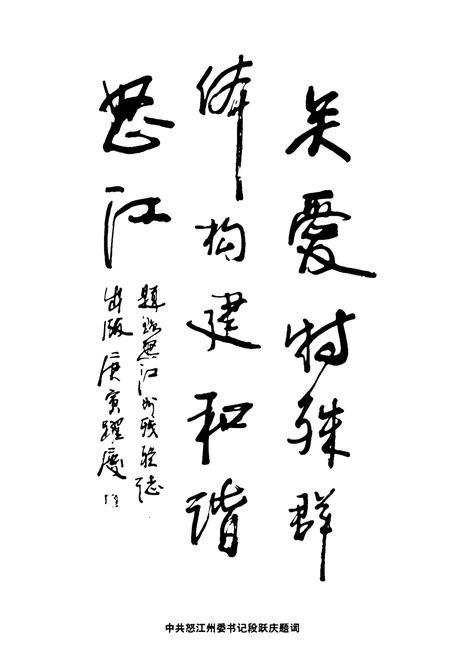 关爱特殊群
体构建和谐
怒江
题怒江州残联志
出版 庚寅跃庆
中共怒江州委书记段跃庆题词